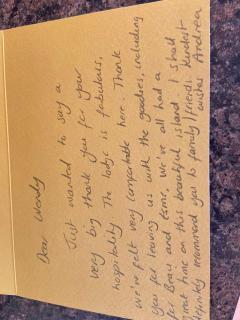 Dear Wendy
Just wanted to say a
very big thank you for your
hospitality. The lodge is fabulous,
we've felt very comfortable here. Thank
you for leaving us with the goodies, including
for Bray and Esme. We've all had a
great time on this beautiful island. I shall
definitely recommend you to family/friends. Kindest
wishes Andrea